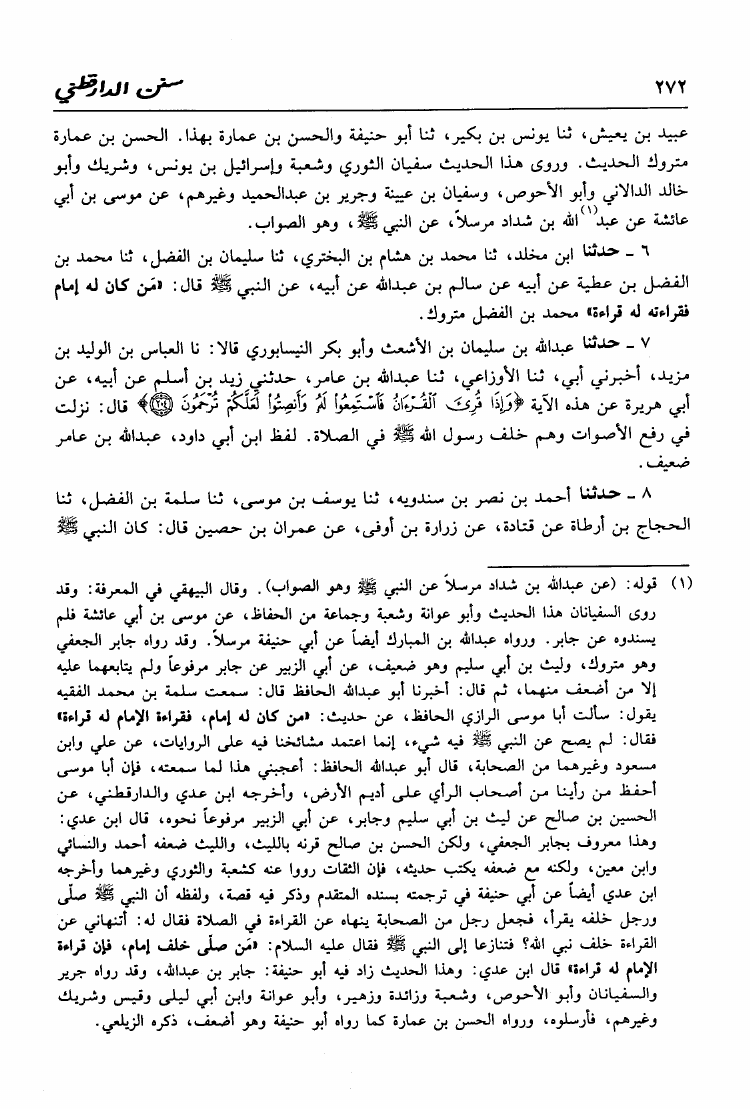 ٢٧٢
سنن الدارقطني
عبيد بن يعيش، ثنا يونس بن بكير، ثنا أبو حنيفة والحسن بن عمارة بهذا. الحسن بن عمارة
متروك الحديث. وروى هذا الحديث سفيان الثوري وشعبة وإسرائيل بن يونس، وشريك وأبو
خالد الدالاني وأبو الأحوص، وسفيان بن عيينة وجرير بن عبدالحميد وغيرهم، عن موسى بن أبي
عائشة عن عبد(١)الله بن شداد مرسلاً، عن النبي ﷺ، وهو الصواب.
٦ ـ حدثنا ابن مخلد، ثنا محمد بن هشام بن البختري، ثنا سليمان بن الفضل، ثنا محمد بن
الفضل بن عطية عن أبيه عن سالم بن عبدالله عن أبيه، عن النبي ﷺ قال: «مَن كان له إمام
فقراءته له قراءة» محمد بن الفضل متروك.
٧ ـ حدثنا عبدالله بن سليمان بن الأشعث وأبو بكر النيسابوري قالا: نا العباس بن الوليد بن
مزيد، أخبرني أبي، ثنا الأوزاعي، ثنا عبدالله بن عامر، حدثني زيد بن أسلم عن أبيه، عن
أبي هريرة عن هذه الآية ﴿وَإِذَا قُرِئَ الْقُرْءَانُ فَاسْتَمِعُوا لَهُ وَأَنصِتُوا لَعَلَّكُمْ تُرْحَمُونَ ﴿٢٠٤﴾﴾ قال: نزلت
في رفع الأصوات وهم خلف رسول الله ﷺ في الصلاة. لفظ ابن أبي داود، عبدالله بن عامر
ضعيف.
٨ ـ حدثنا أحمد بن نصر بن سندويه، ثنا يوسف بن موسى، ثنا سلمة بن الفضل، ثنا
الحجاج بن أرطاة عن قتادة، عن زرارة بن أوفى، عن عمران بن حصين قال: كان النبي ﷺ
(١) قوله: (عن عبدالله بن شداد مرسلاً عن النبي ﷺ وهو الصواب). وقال البيهقي في المعرفة: وقد
روى السفيانان هذا الحديث وأبو عوانة وشعبة وجماعة من الحفاظ، عن موسى بن أبي عائشة فلم
يسندوه عن جابر. ورواه عبدالله بن المبارك أيضاً عن أبي حنيفة مرسلاً. وقد رواه جابر الجعفي
وهو متروك، وليث بن أبي سليم وهو ضعيف، عن أبي الزبير عن جابر مرفوعاً ولم يتابعهما عليه
إلا من أضعف منهما، ثم قال: أخبرنا أبو عبدالله الحافظ قال: سمعت سلمة بن محمد الفقيه
يقول: سألت أبا موسى الرازي الحافظ، عن حديث: «من كان له إمام، فقراءة الإمام له قراءة»
فقال: لم يصح عن النبي ﷺ فيه شيء، إنما اعتمد مشائخنا فيه على الروايات، عن علي وابن
مسعود وغيرهما من الصحابة، قال أبو عبدالله الحافظ: أعجبني هذا لما سمعته، فإن أبا موسى
أحفظ من رأينا من أصحاب الرأي على أديم الأرض، وأخرجه ابن عدي والدارقطني، عن
الحسين بن صالح عن ليث بن أبي سليم وجابر، عن أبي الزبير مرفوعاً نحوه، قال ابن عدي:
وهذا معروف بجابر الجعفي، ولكن الحسن بن صالح قرنه بالليث، والليث ضعفه أحمد والنسائي
وابن معين، ولكنه مع ضعفه يكتب حديثه، فإن الثقات رووا عنه كشعبة والثوري وغيرهما وأخرجه
ابن عدي أيضاً عن أبي حنيفة في ترجمته بسنده المتقدم وذكر فيه قصة، ولفظه أن النبي ﷺ صلّى
ورجل خلفه يقرأ، فجعل رجل من الصحابة ينهاه عن القراءة في الصلاة فقال له: أتنهاني عن
القراءة خلف نبي الله؟ فتنازعا إلى النبي ﷺ فقال عليه السلام: «مَن صلّى خلف إمام، فإن قراءة
الإمام له قراءة» قال ابن عدي: وهذا الحديث زاد فيه أبو حنيفة: جابر بن عبدالله، وقد رواه جرير
والسفيانان وأبو الأحوص، وشعبة وزائدة وزهير، وأبو عوانة وابن أبي ليلى وقيس وشريك
وغيرهم، فأرسلوه، ورواه الحسن بن عمارة كما رواه أبو حنيفة وهو أضعف، ذكره الزيلعي.